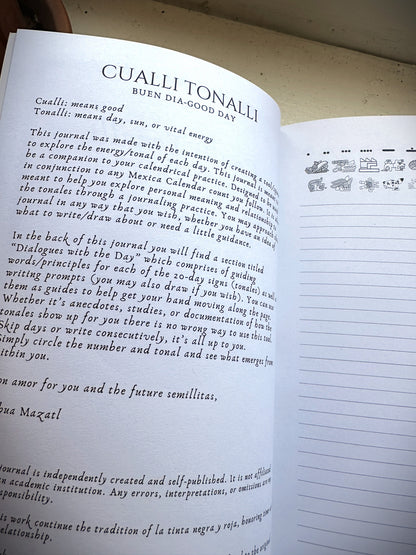 CUALLI TONALLI
BUEN DIA-GOOD DAY
Cualli: means good
Tonalli: means day, sun, or vital energy
This journal was made with the intention of creating a tool
to explore the energy/tonal of each day. This journal is
be a companion to your calendrical practice. Designed to
in conjunction to any Mexica Calendar count you follow. It
meant to help you explore personal meaning and relationship
the tonales through a journaling practice. You may approach
journal in any way that you wish, whether you have an idea of
what to write/draw about or need a little guidance.
In the back of this journal you will find a section titled
"Dialogues with the Day" which comprises of guiding
words/principles for each of the 20-day signs (tonales) as
writing prompts (you may also draw if you wish). You can use
them as guides to help get your hand moving along the page.
Whether it's anecdotes, studies, or documentation of how the
tonales show up for you there is no wrong way to use this tool.
Skip days or write consecutively, it's all up to you.
Simply circle the number and tonal and see what emerges from
within you.
on amor for you and the future semillitas,
hua Mazatl
journal is independently created and self-published. It is not affiliated
an academic institution. Any errors, interpretations, or omissions are my
responsibility.
is work continue the tradition of la tinta negra y roja, honoring
relationship.